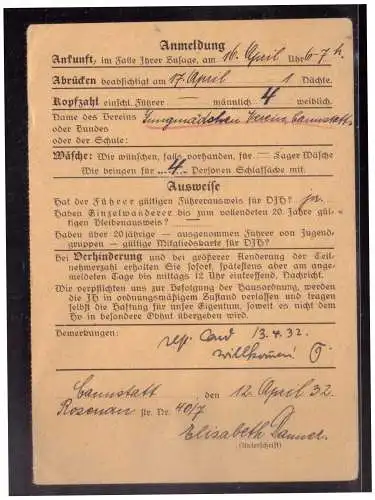 Anmeldung
Ankunft, im Falle Ihrer Zusage, am 16. April Uhr 6-7 h.
Abrücken beabsichtigt am 17. April — 1 Nächte.
Kopfzahl einschl. Führer — männlich 4 weiblich.
Name des Vereins Jungmädchen Verein, Cannstatt
oder Bundes
oder der Schule:
Wäsche: Wir wünschen, falls vorhanden, für — Lager Wäsche
Wir bringen für ...4... Personen Schlafsäcke mit.
Ausweise
Hat der Führer gültigen Führerausweis für DJH? ja.
Haben Einzelwanderer bis zum vollendeten 20. Jahre gül-
tigen Bleibenausweis? —
Haben über 20jährige — ausgenommen Führer von Jugend-
gruppen — gültige Mitgliedskarte für DJH? —
Bei Verhinderung und bei größerer Aenderung der Teil-
nehmerzahl erhalten Sie sofort, spätestens aber am ange-
meldeten Tage bis mittags 12 Uhr eintreffend, Nachricht.
Wir verpflichten uns zur Befolgung der Hausordnung, werden
die JH in ordnungsmäßigem Zustand verlassen und tragen
selbst die Haftung für unser Eigentum, soweit es nicht dem
Hv in besondere Obhut übergeben wird.
Bemerkungen:
13.4.32.
willkommen!
Cannstatt, den 12. April 32.
Rosenau str. Nr. 40/7
Elisabeth
(Unterschrift)